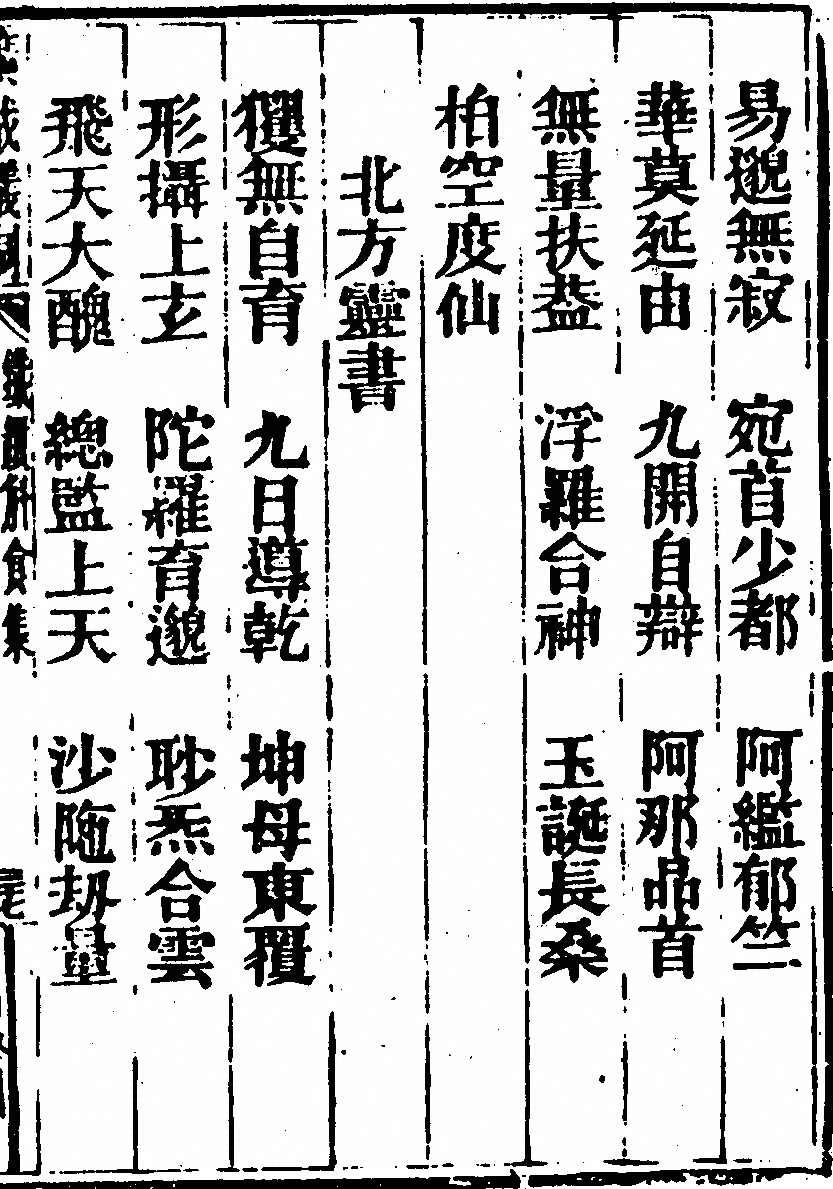 易邈無寂 宛首少都 阿繿郁竺
華莫延由 九開自辯 阿那品首
無量扶蓋 浮羅合神 玉誕長桑
柏空度仙
北方靈書
玃無自育 九日導乾 坤母東覆
形攝上玄 陀羅育邈 眇炁合雲
飛天大醜 總監上天 沙陁劫量
食集